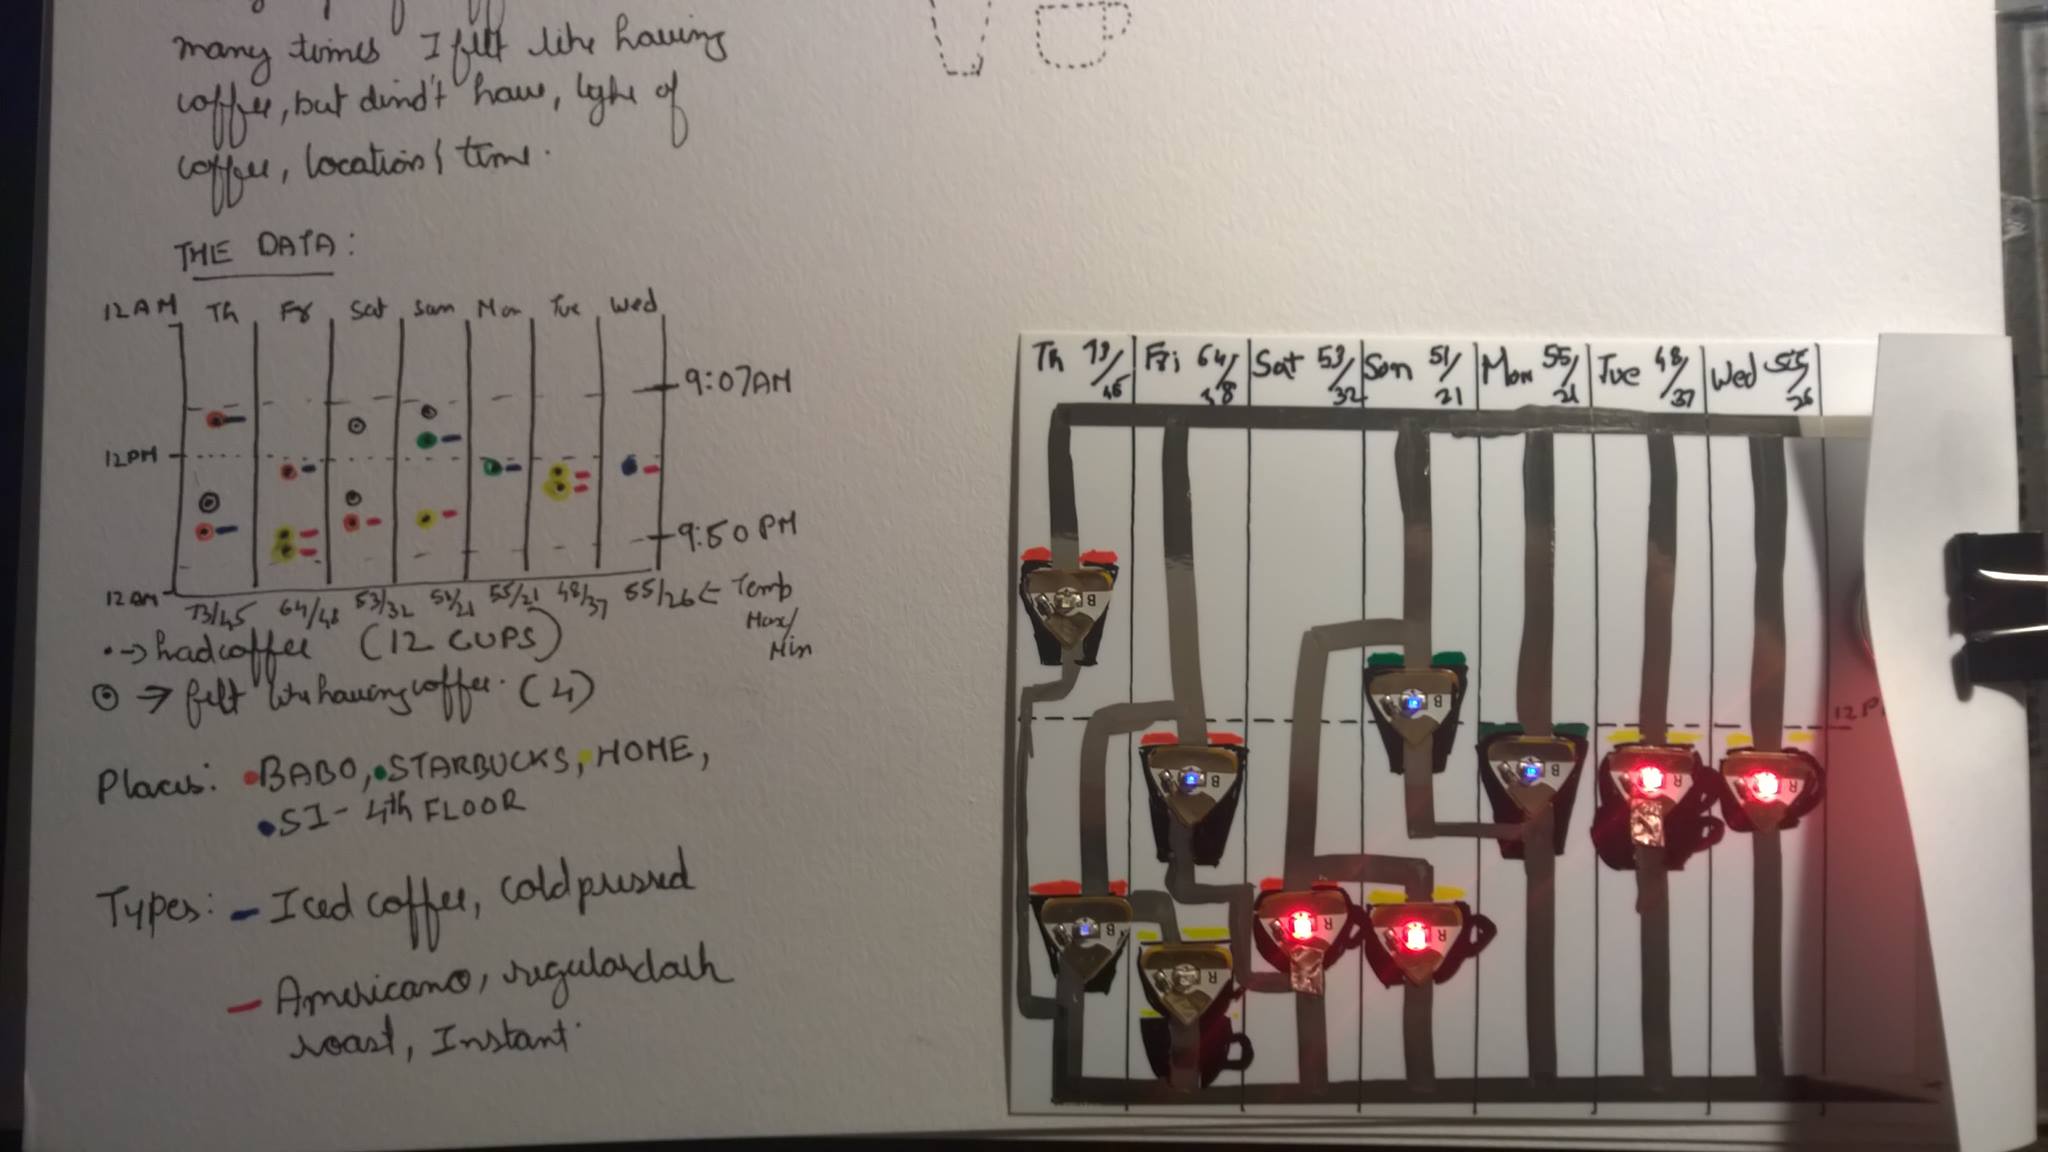 many times I felt like having
coffee, but dind't have, type of
coffee, location & time.
THE DATA:
12AM Th Fr Sat Sun Mon Tue Wed
9:07AM
12PM
9:50 PM
12AM 73/45 64/48 53/32 51/21 55/21 48/37 55/26 ← Temp
Max/
Min
• → had coffee (12 CUPS)
⊙ → felt like having coffee. (4)
Places: • BABO, • STARBUCKS, • HOME,
• SI - 4th FLOOR
Types: - Iced coffee, cold pressed
- Americano, regular dark
roast, Instant
Th 73/45 Fri 64/48 Sat 53/32 Sun 51/21 Mon 55/21 Tue 48/37 Wed 55/26
B
B
B
B
R
R
12P
B
R
R
R